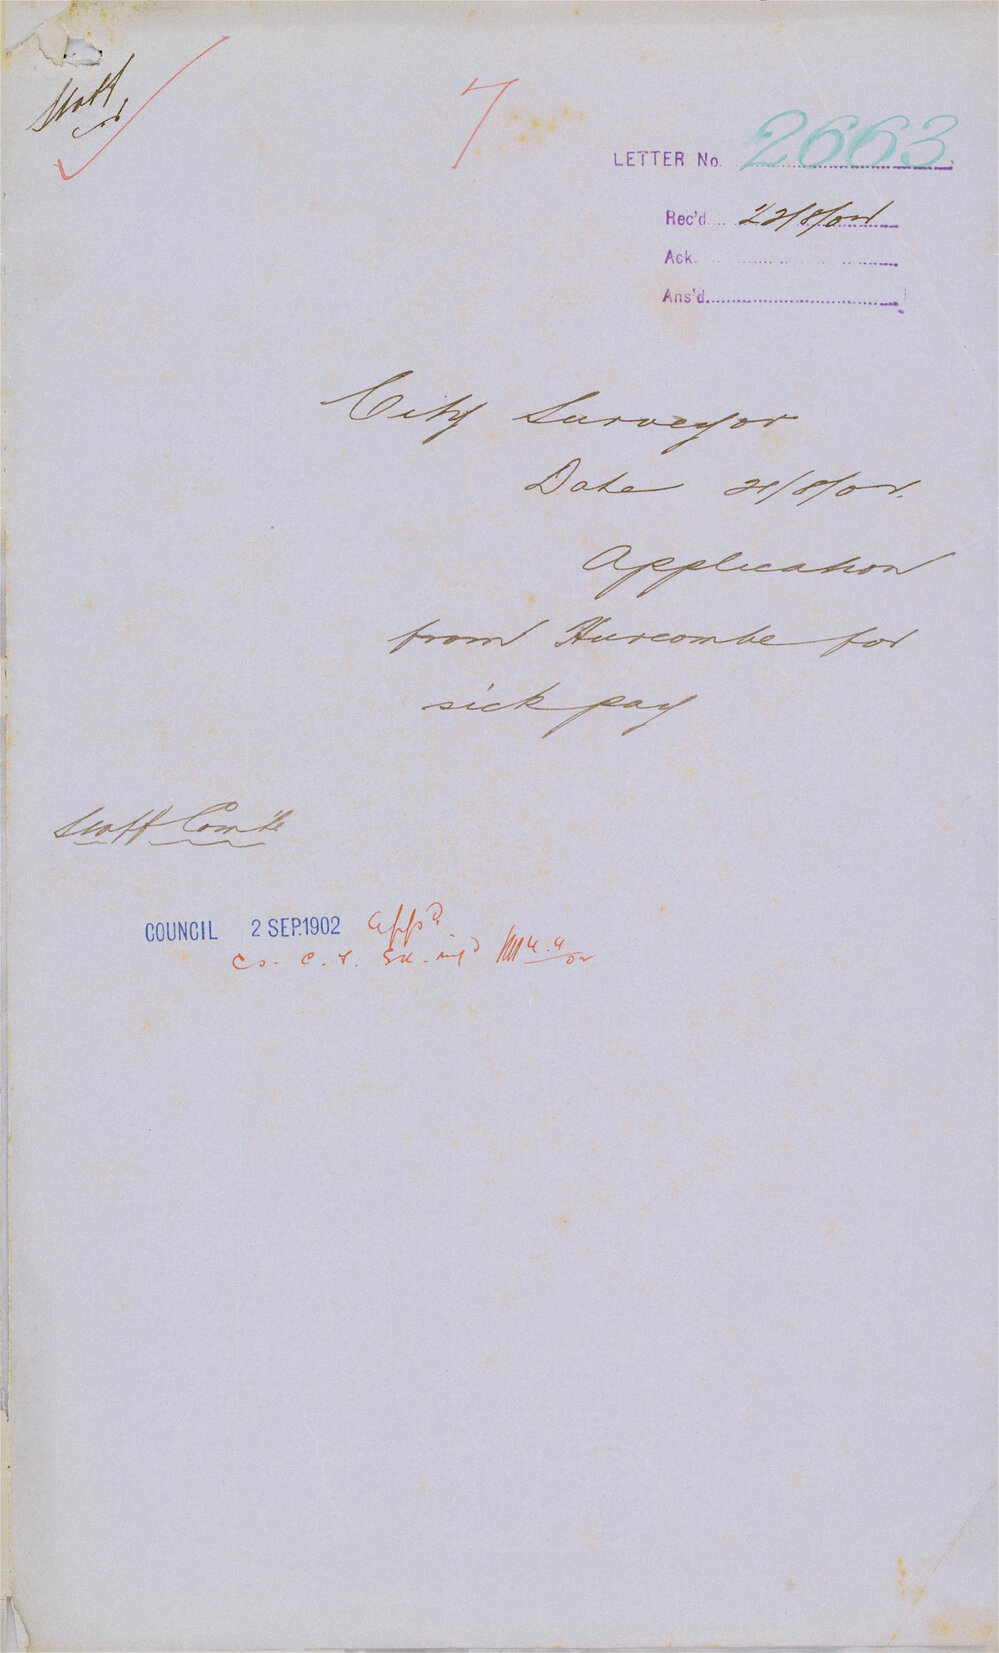 Staff
7
LETTER No. 2663
Rec'd 22/8/02
Ack.
Ans'd
City Surveyor
Date 21/8/02.
Application
from Hurcombe for
sick pay
Staff Com'te
COUNCIL 2 SEP.1902 appd